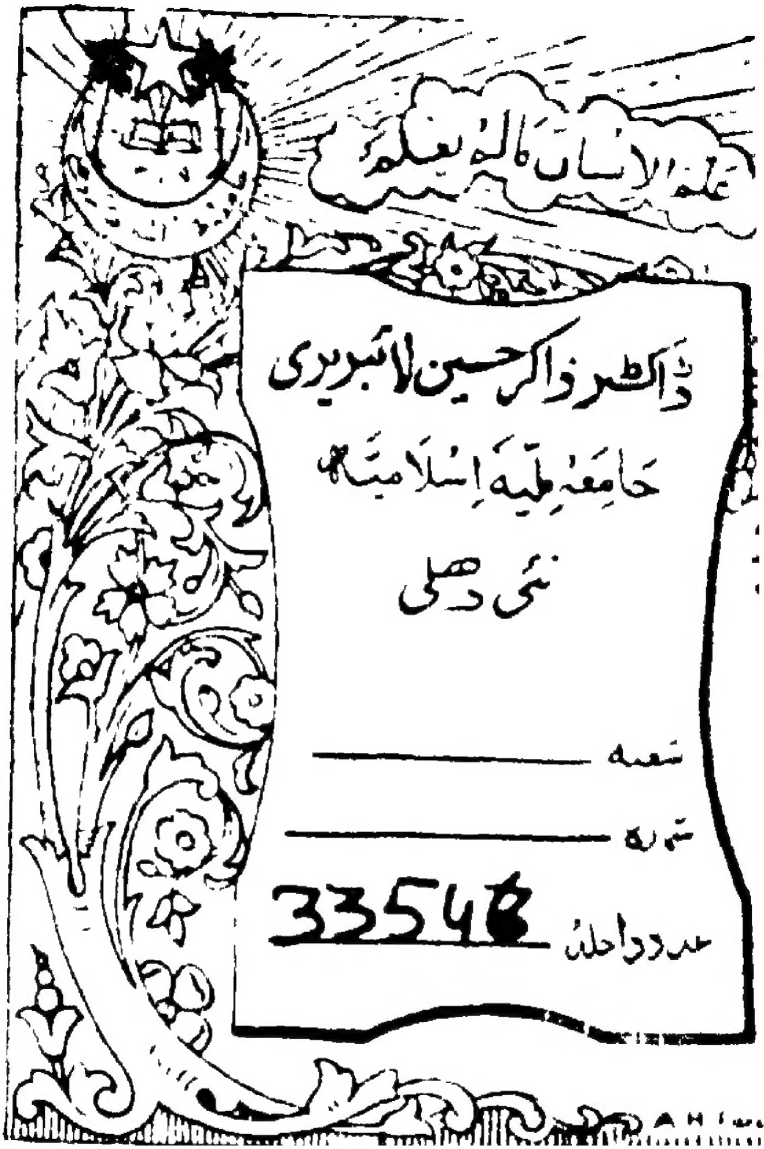 علم الانسان مالم یعلم
ڈاکٹر ذاکر حسین لائبریری
جامعہ ملیہ اسلامیہ
نئی دھلی
شعبہ
شمارہ
عدد داخلہ 3354
A H